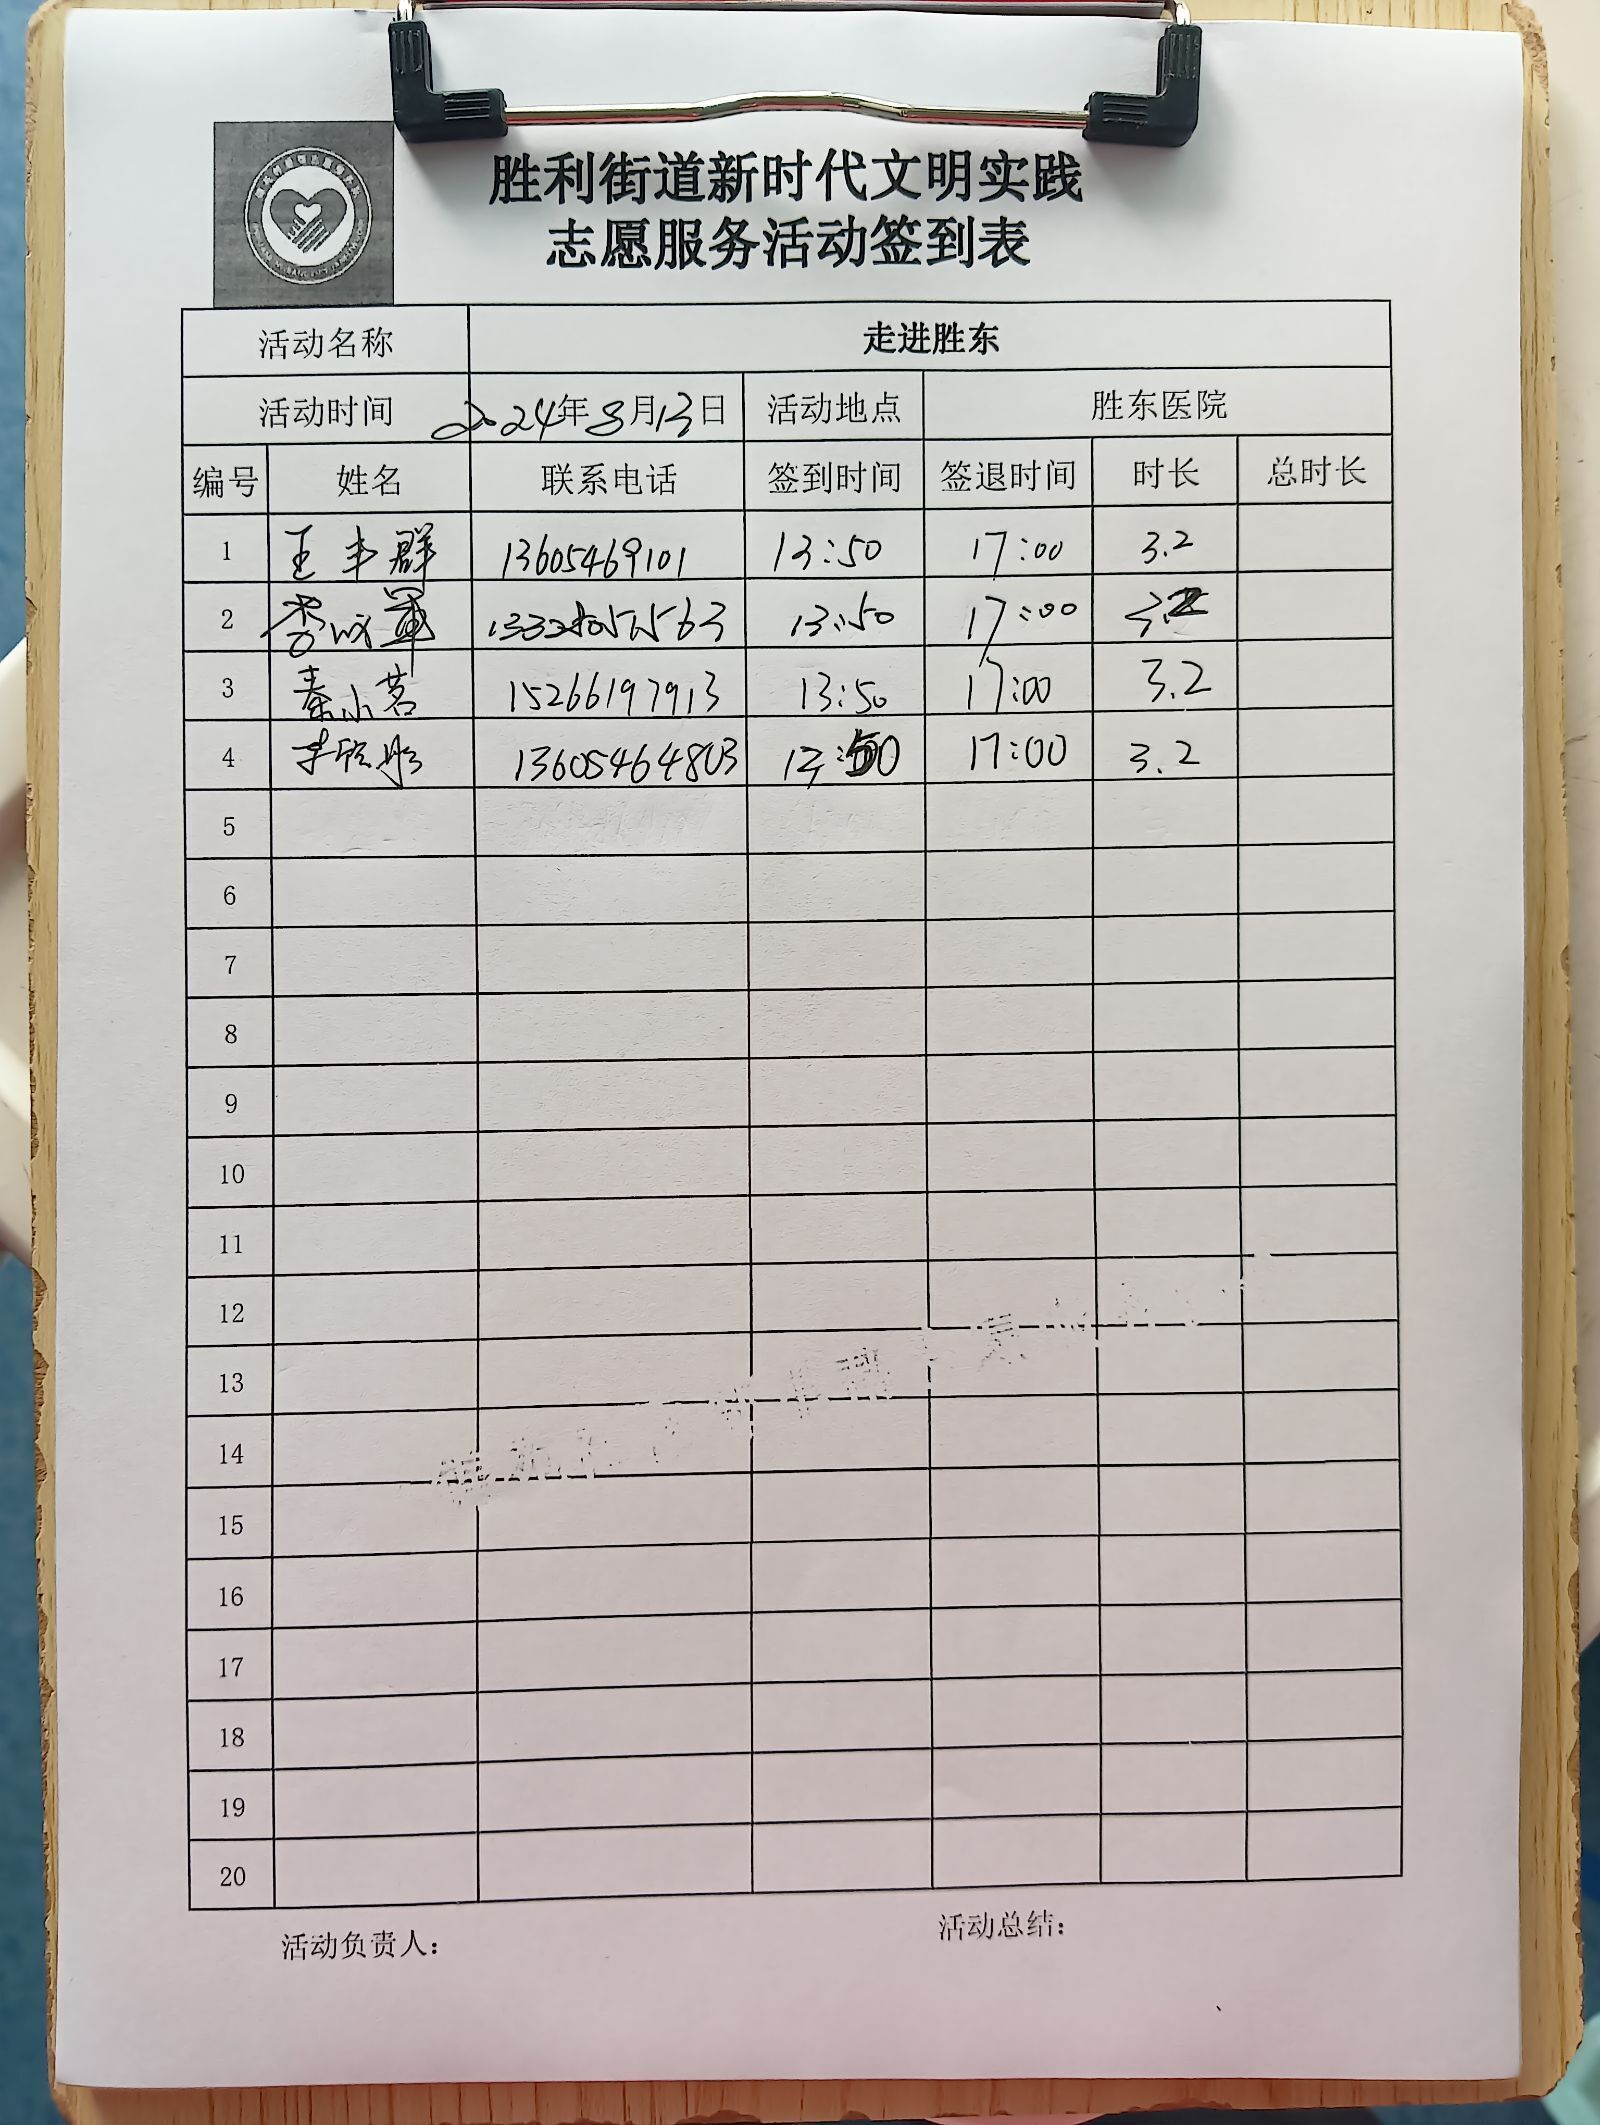 胜利街道新时代文明实践
志愿服务活动签到表
活动名称 走进胜东
活动时间 2024年8月13日 活动地点 胜东医院
编号 姓名 联系电话 签到时间 签退时间 时长 总时长
1 王丰群 13605469101 13:50 17:00 3.2
2 13:50 17:00 3.2
3 秦小茗 15266197913 13:50 17:00 3.2
4 李欣彤 13605464803 13:50 17:00 3.2
5
6
7
8
9
10
11
12
13
14
15
16
17
18
19
20
活动负责人： 活动总结：